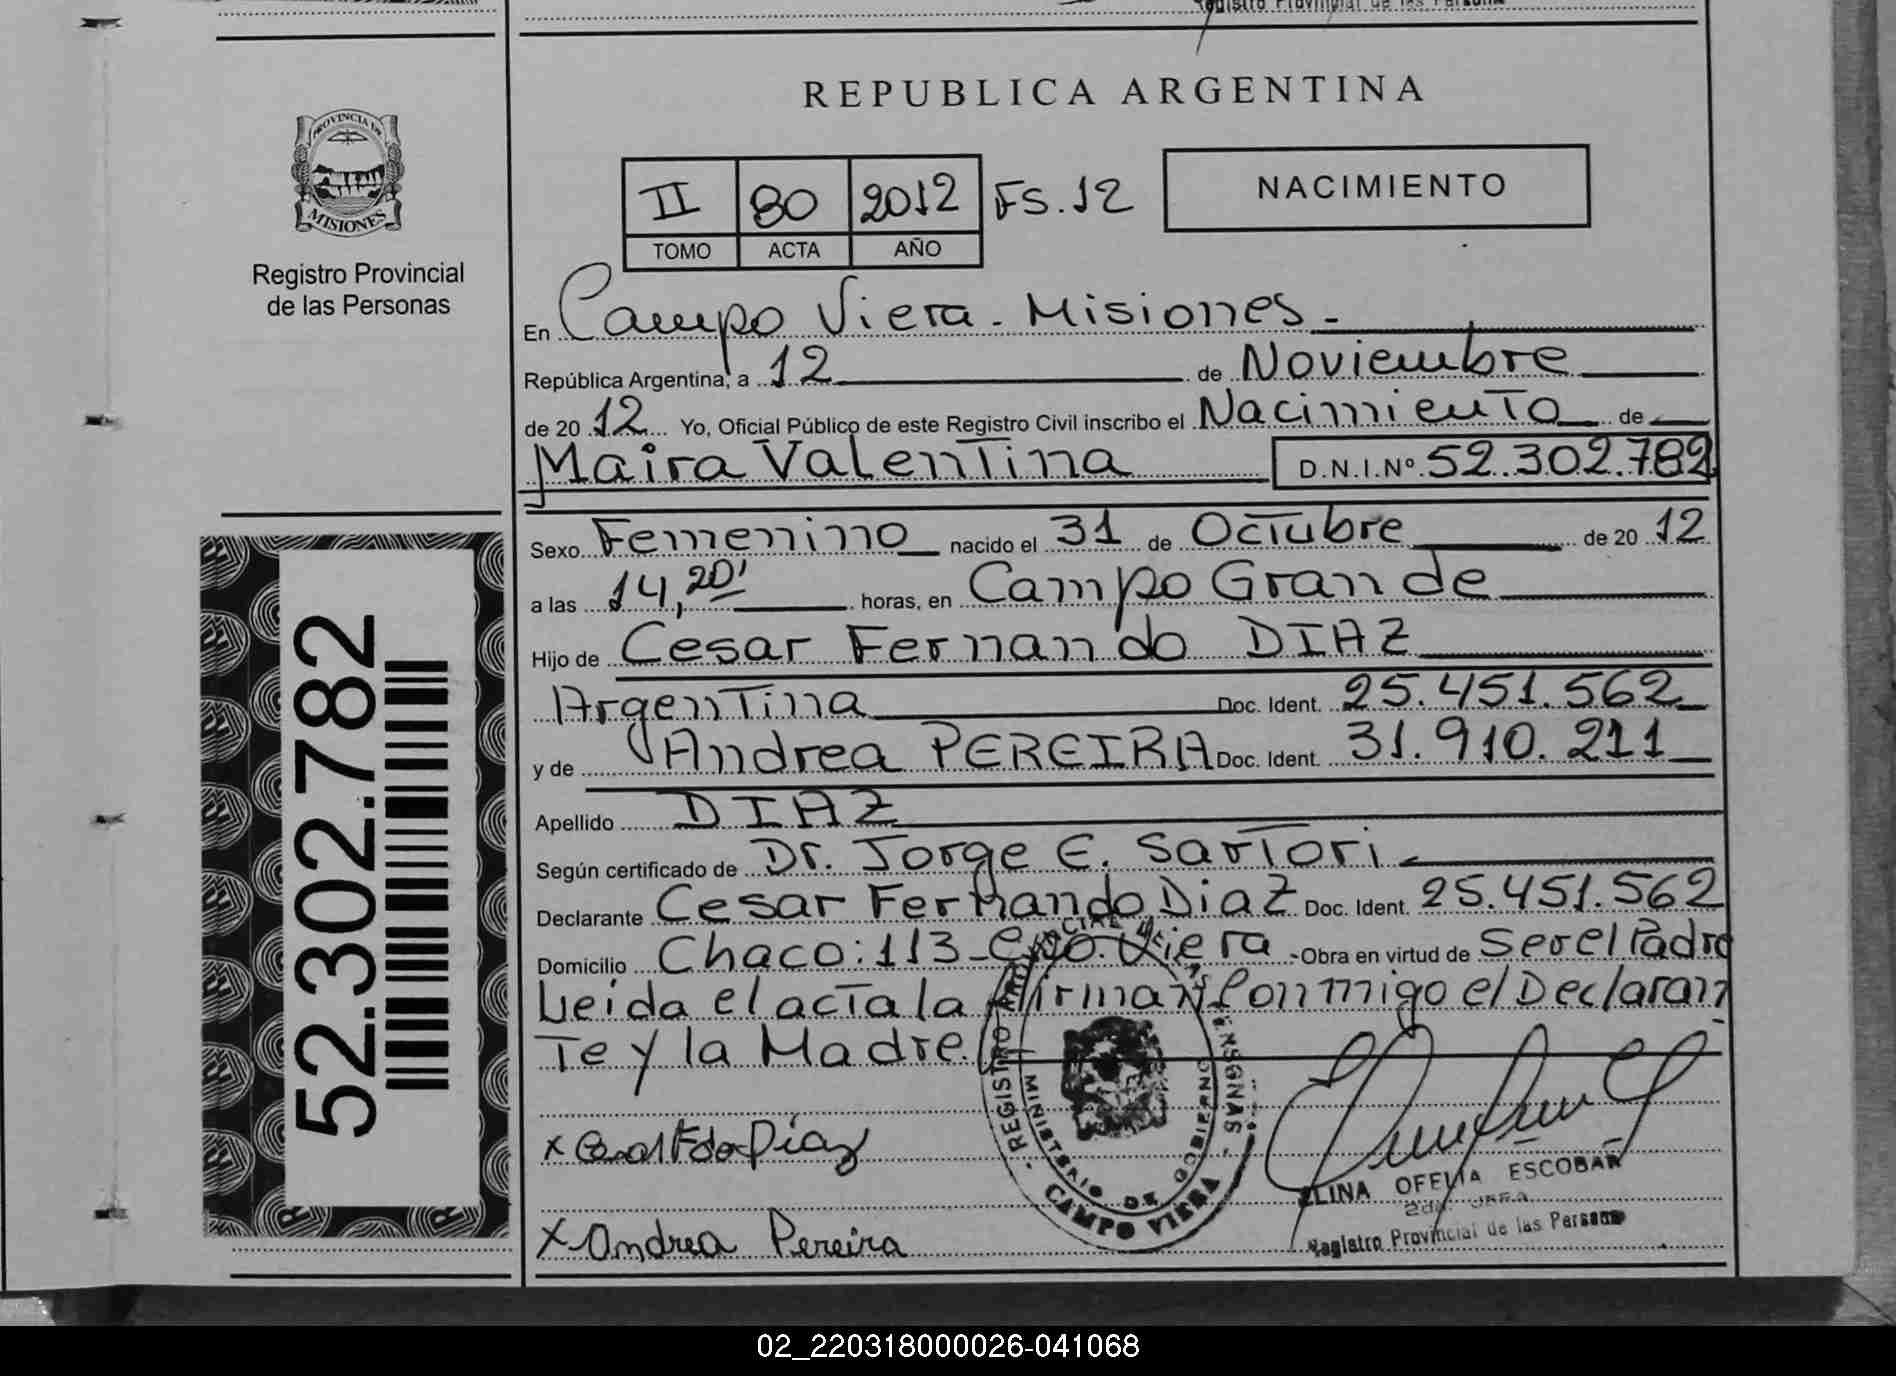 Registro Provincial de las Persona
PROVINCIA DE
MISIONES
Registro Provincial
de las Personas
REPUBLICA ARGENTINA
II 80 2012 FS.12
TOMO ACTA AÑO
NACIMIENTO
En Campo Viera - Misiones -
República Argentina, a 12 de Noviembre
de 2012 Yo, Oficial Público de este Registro Civil inscribo el Nacimiento de
Maira Valentina D.N.I.Nº 52.302.782
Sexo Femenino nacido el 31 de Octubre de 2012
a las 14,20' horas, en Campo Grande
Hijo de Cesar Fernando DIAZ
Argentina Doc. Ident. 25.451.562
y de Andrea PEREIRA Doc. Ident. 31.910.211
Apellido DIAZ
Según certificado de Dr. Jorge E. Sartori -
Declarante Cesar Fernando Diaz Doc. Ident. 25.451.562
Domicilio Chaco: 113 - Cpo. Viera - Obra en virtud de Ser el Padre
Leida el acta la firman Conmigo el Declaran
Te y la Madre.
x Cesar Fdo Díaz
X Andrea Pereira
MINISTERIO DE GOBIERNO
CAMPO VIERA
ELINA OFELIA ESCOBAR
Registro Provincial de las Personas
52.302.782
02_220318000026-041068